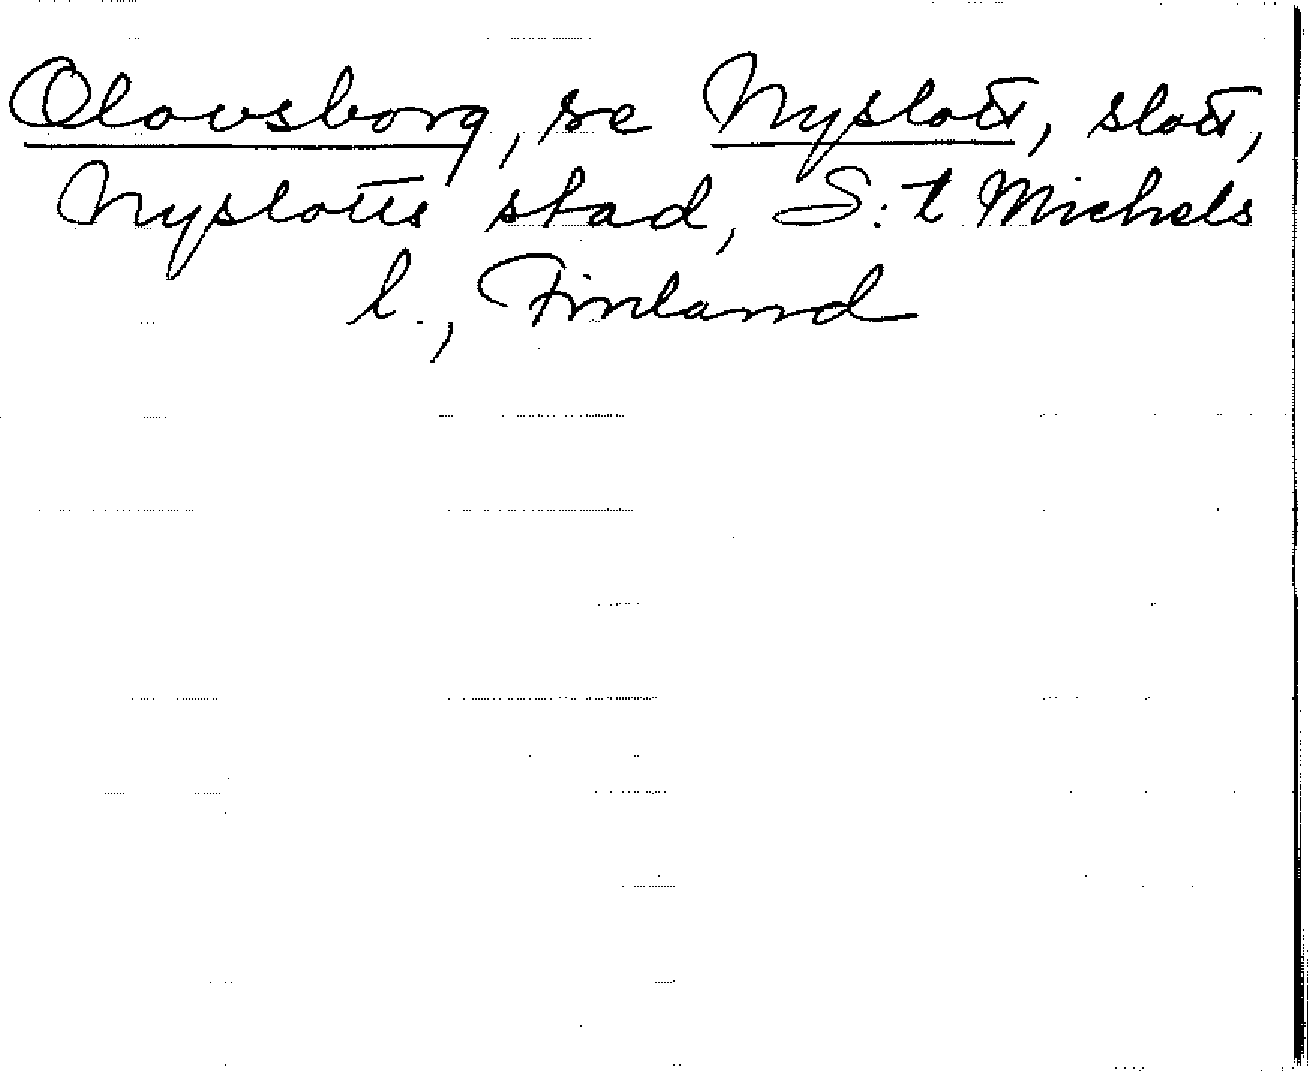 Olovsborg, se Nyslott, slott,
Nyslotts stad, S:t Michels
l., Finland